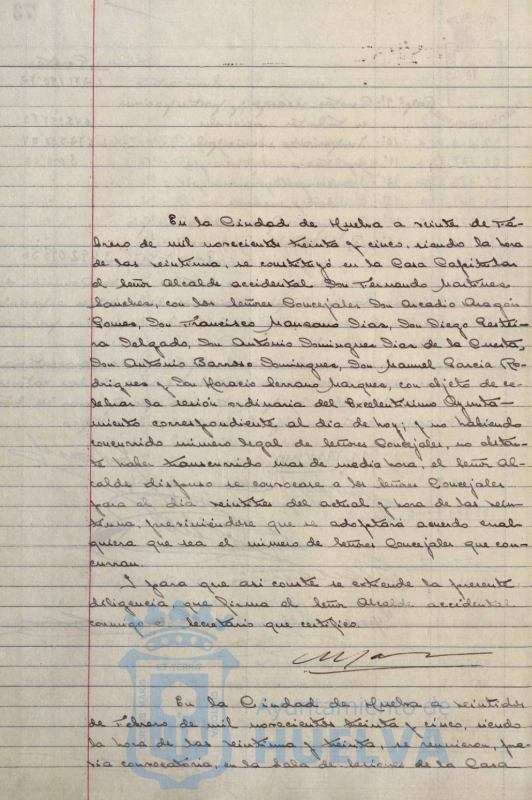 En la Ciudad de Huelva a veinte de Fe-
brero de mil novecientos treinta y cinco, siendo la hora
de las veintiuna, se constituyó en la Casa Capitular
el señor Alcalde accidental Don Fernando Martinez
Sanchez, con los señores Concejales Don Arcadio Aragón
Gomez, Don Francisco Manzano Diaz, Don Diego
Delgado, Don Antonio Dominguez Diaz de la Cuesta,
Don Antonio Barroso Dominguez, Don Manuel Garcia Ro-
driguez y Don Horacio Serrano Marquez, con objeto de ce-
lebrar la sesión ordinaria del Excelentisimo Ayunta-
miento correspondiente al dia de hoy; y no habiendo
concurrido número legal de señores Concejales, no obstan-
te haber transcurrido mas de media hora, el señor Al-
calde dispuso se convocase a los señores Concejales
para el dia veintitres del actual y hora de las vein-
tiuna, previniéndose que se adoptará acuerdo cual-
quiera que sea el número de señores Concejales que con-
curran.
Y para que asi conste se extiende la presente
diligencia que firma el señor Alcalde accidental
conmigo el Secretario que certifico.
En la Ciudad de Huelva a veintidos
de Febrero de mil novecientos treinta y cinco, siendo
la hora de las veintiuna y treinta, se reunieron, pre-
via convocatoria, en la Sala de sesiones de la Casa
Ayuntamiento de
HUELVA